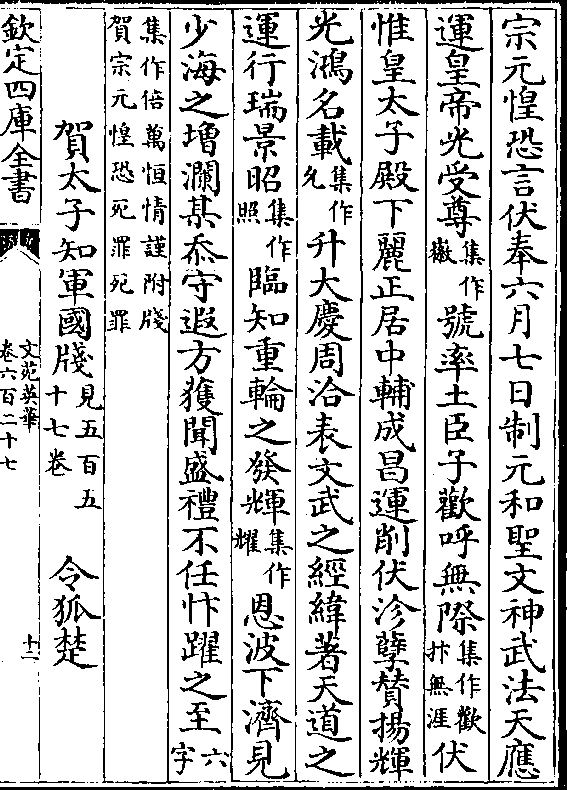 宗元惶恐言伏奉六月七日制元和聖文神武法天應
運皇帝光受尊集作徽號率土臣子歡呼無際集作歡忭無涯伏
惟皇太子殿下麗正居中輔成昌運削伏沴孽賛揚輝
光鴻名載集作允升大慶周洽表文武之經緯著天道之
運行瑞景昭集作照臨知重輪之發輝集作耀恩波下濟見
少海之増瀾某忝守遐方獲聞盛禮不任忭躍之至六字
集作倍萬恒情謹附牋
賀宗元惶恐死罪死罪
賀太子知軍國牋見五百五十七卷 令狐楚
欽定四庫全書
文苑英華
卷六百二十七
十二